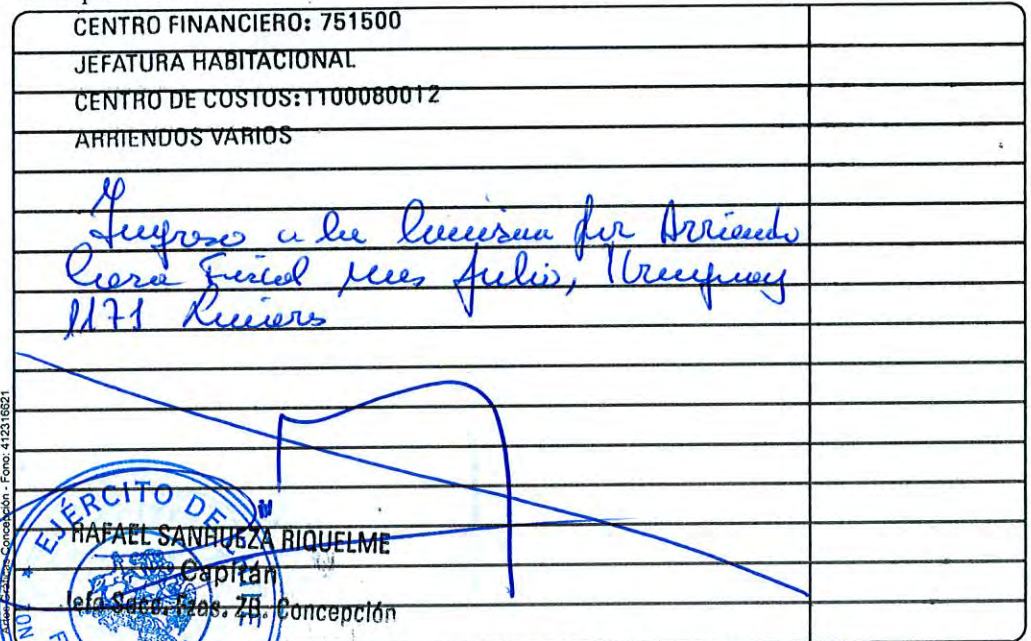 CENTRO FINANCIERO: 751500
JEFATURA HABITACIONAL
CENTRO DE COSTOS:1100080012
ARRIENDOS VARIOS
Ingreso a la por Arriendo
Casa Fiscal mes Julio, Uruguay
1171
EJÉRCITO DE
RAFAEL SANHUEZA RIQUELME
Capitán
Jefe Secc. Fzas. ZB. Concepción
Artes Gráficas Concepción - Fono: 412316621